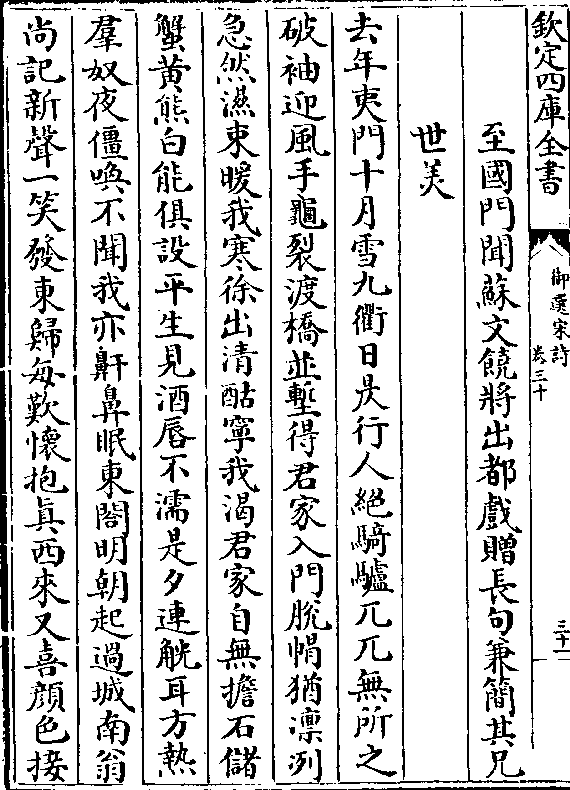 欽定四庫全書
御選宋詩
卷三十
三十一
至國門聞蘇文饒將出都戲贈長句兼簡其兄
世美
去年夷門十月雪九衢日昃行人絕騎驢兀兀無所之
破袖迎風手龜裂渡橋並塹得君家入門脫帽猶凛冽
急然濕束暖我寒徐出清酤寧我渴君家自無擔石儲
蟹黄熊白能俱設平生見酒唇不濡是夕連觥耳方熱
羣奴夜僵喚不聞我亦鼾鼻眠東閣明朝起過城南翁
尚記新聲一笑發東歸每歎懷抱真西來又喜顔色接